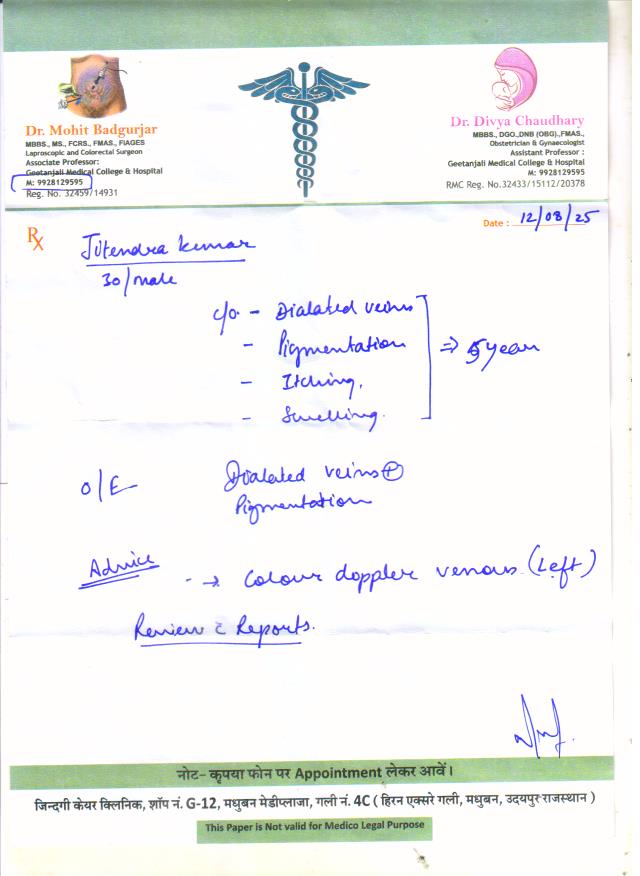 Dr. Mohit Badgurjar
MBBS., MS., FCRS, FMAS., FIAGES
Laproscopic and Colorectal Surgeon
Associate Professor:
Geetanjali Medical College & Hospital
M: 9928129595
Reg. No. 32459/14931
Dr. Divya Chaudhary
MBBS., DGO.,DNB (OBG).,FMAS.,
Obstetrician & Gynaecologist
Assistant Professor :
Geetanjali Medical College & Hospital
M: 9928129595
RMC Reg. No.32433/15112/20378
Date : 12/08/25
Rx
Jitendra Kumar
30/male
c/o. - Dialated veins
- Pigmentation
- Itching.
- Swelling.
⇒ 5 year
O/E Dialated veins ⊕
Pigmentation
Advice → Colour doppler venous (Left)
Review c̄ Reports.
नोट– कृपया फोन पर Appointment लेकर आवें।
जिन्दगी केयर क्लिनिक, शॉप नं. G-12, मधुबन मेडीप्लाजा, गली नं. 4C ( हिरन एक्सरे गली, मधुबन, उदयपुर राजस्थान )
This Paper is Not valid for Medico Legal Purpose